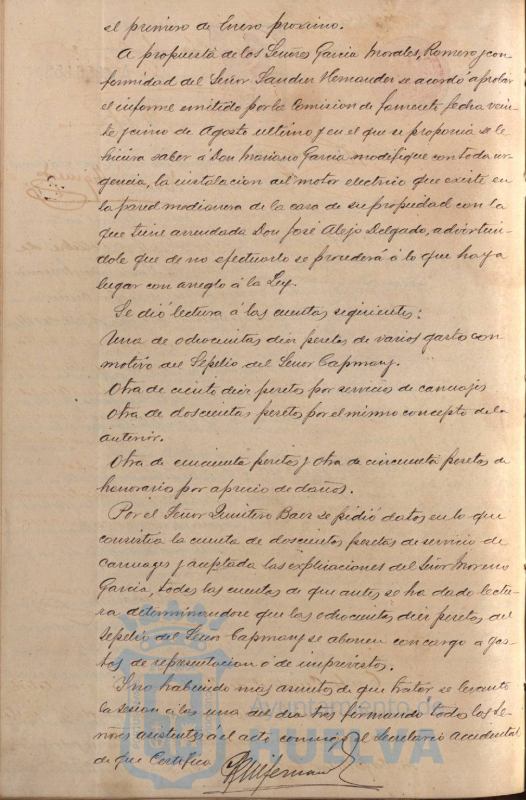 el primero de Enero proximo.
A propuesta de los Señores Garcia Morales, Romero y con-
formidad del Señor Sanchez Hernandez se acordó aprobar
el informe emitido por la Comision de fomento fecha vein-
te y cinco de Agosto ultimo y en el que se proponia se le
hiciera saber á Don Mariano Garcia modifique con toda ur-
gencia, la instalacion del motor electrico que existe en
la pared medianera de la casa de su propiedad con la
que tiene arrendada Don José Alejo Delgado, advirtien-
dole que de no efectuarlo se procederá á lo que haya
lugar con arreglo á la Ley.
Se dió lectura á las cuentas siguientes:
Una de ochocientas diez pesetas de varios gastos con
motivo del Sepelio del Señor Capmany.
Otra de ciento diez pesetas por servicio de carruajes
Otra de doscientas pesetas por el mismo concepto de la
anterior.
Otra de cincuenta pesetas y otra de cincuenta pesetas de
honorarios por aprecio de daños.
Por el Señor Quintero Baez se pidió datos en lo que
consistia la cuenta de doscientas pesetas de servicio de
carruages y aceptada las explicaciones del Señor Moreno
Garcia, todas las cuentas de que antes se ha dado lectu-
ra determinandose que las ochocientas diez pesetas del
Sepelio del Señor Capmany se abonen con cargo a gas-
tos de representacion ó de imprevistos.
Y no habiendo más asuntos de que tratar se levantó
la sesion á las una del dia tres firmando todos los Se-
ñores asistentes á el acto conmigo el Secretario accidental
de que Certifico.
Ayuntamiento de
HUELVA